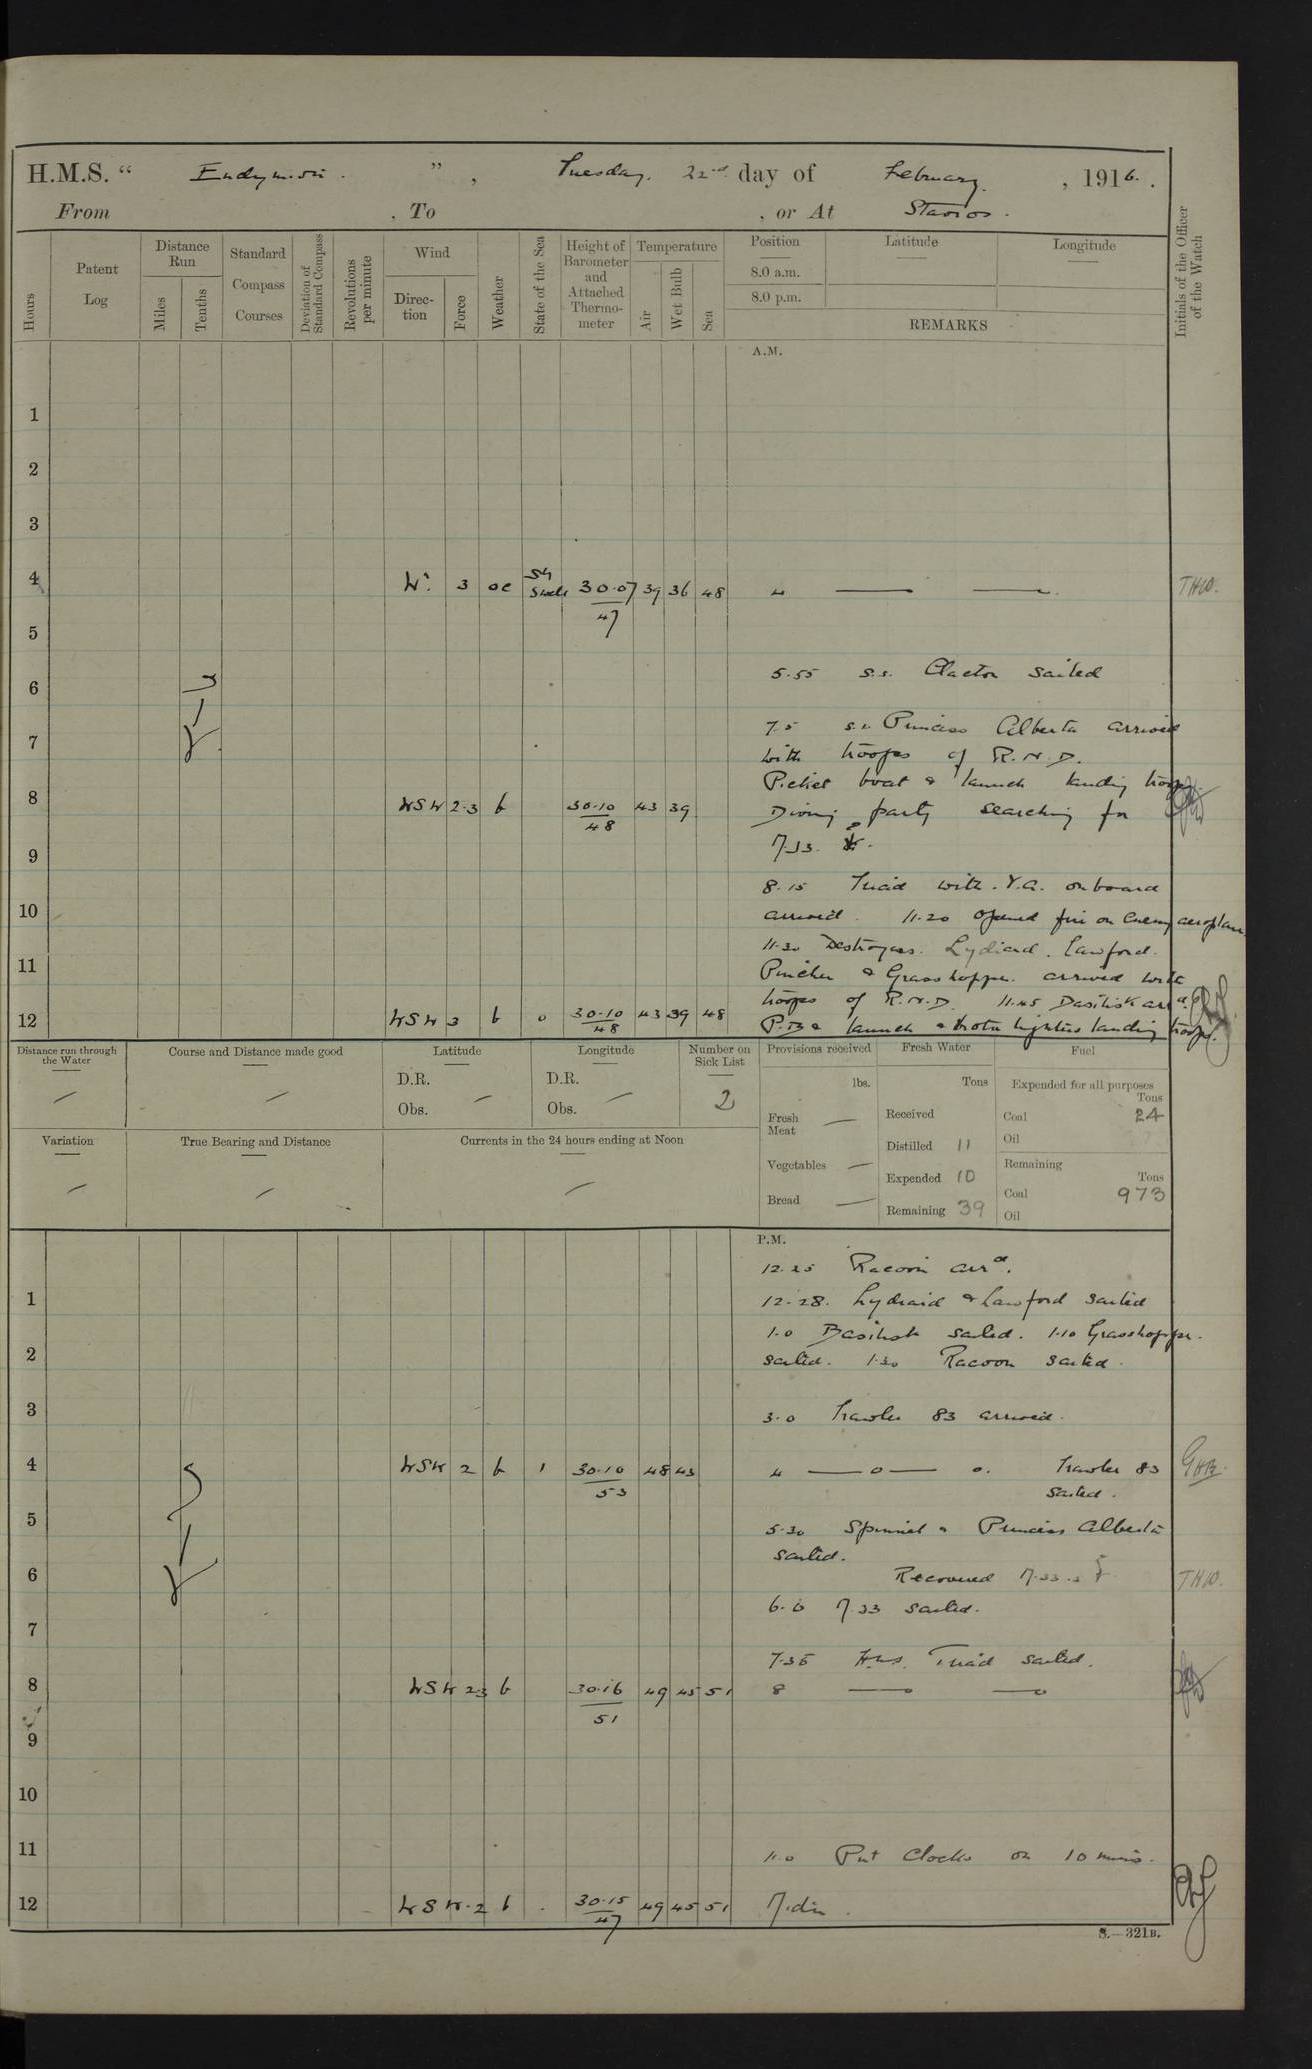 H.M.S. “ Endymion . ” , Tuesday. 22nd day of February. , 1916. .
From , To , or At Stavros .
Hours
Patent Log
Distance Run
Miles
Tenths
Standard Compass Courses
Deviation of Standard Compass
Revolutions per minute
Wind
Direction
Force
Weather
State of the Sea
Height of Barometer and Attached Thermometer
Temperature
Air
Wet Bulb
Sea
Position
8.0 a.m.
8.0 p.m.
Latitude
Longitude
REMARKS
Initials of the Officer of the Watch
A.M.
1
2
3
4 W. 3 oc 30.07 39 36 48 4
47
THW.
5
5.55 s.s. Clacton sailed
6
7.5 s.s. Princess Alberta arrived
7
with troops of R.N.D.
Picket boat & launch landing troops.
8 WSW 2.3 b 30.10 43 39 Diving party searching for
48
7.33.
9
8.15 Triad with V.A. onboard
10 arrived. 11.20 Opened fire on Enemy aeroplane
11.30 Destroyers. Lydiard. Lawford.
11 Pincher & Grasshopper. arrived with
troops of R.N.D. 11.45 Basilisk arrd.
12 WSW 3 b 0 30.10 43 39 48 P.B & launch & motor lighters landing troops.
48
Distance run through the Water
Course and Distance made good
Latitude
D.R.
Obs.
Longitude
D.R.
Obs.
Number on Sick List
2
Variation
True Bearing and Distance
Currents in the 24 hours ending at Noon
Provisions received
lbs.
Fresh Meat
Vegetables
Bread
Fresh Water
Tons
Received
Distilled 11
Expended 10
Remaining 39
Fuel
Expended for all purposes
Tons
Coal 24
Oil
Remaining
Tons
Coal 973
Oil
P.M.
12.25 Racoon arrd.
1 12.28. Lydiard & Lawford sailed
1.0 Basilisk sailed. 1.10 Grasshopper.
2 sailed. 1.30 Racoon sailed.
3 3.0 Trawler 83 arrived.
4 WSW 2 b 1 30.10 48 43 4 Trawler 83
53 sailed.
5 5.30 & Princess Alberta
sailed.
6 Recovered 7.33
THW.
6.0 7.33 sailed.
7
7.35 H.M.S. Triad sailed.
8 WSW 2.3 b 30.16 49 45 51 8
51
9
10
11 11.0 Put Clocks on 10 mins.
12 WSW. 2 b . 30.15 49 45 51 Mdn.
47
S.—321B.